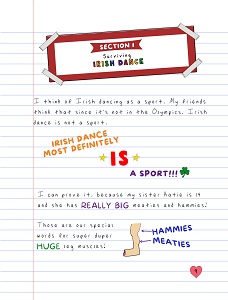 SECTION 1
Surviving
IRISH DANCE
I think of Irish dancing as a sport. My friends
think that since it's not in the Olympics, Irish
dance is not a sport.
IRISH DANCE
MOST DEFINITELY
IS
A SPORT!!!
I can prove it, because my sister Katie is 14
and she has REALLY BIG meaties and hammies!
Those are our special
words for super duper
HUGE leg muscles!
HAMMIES
MEATIES